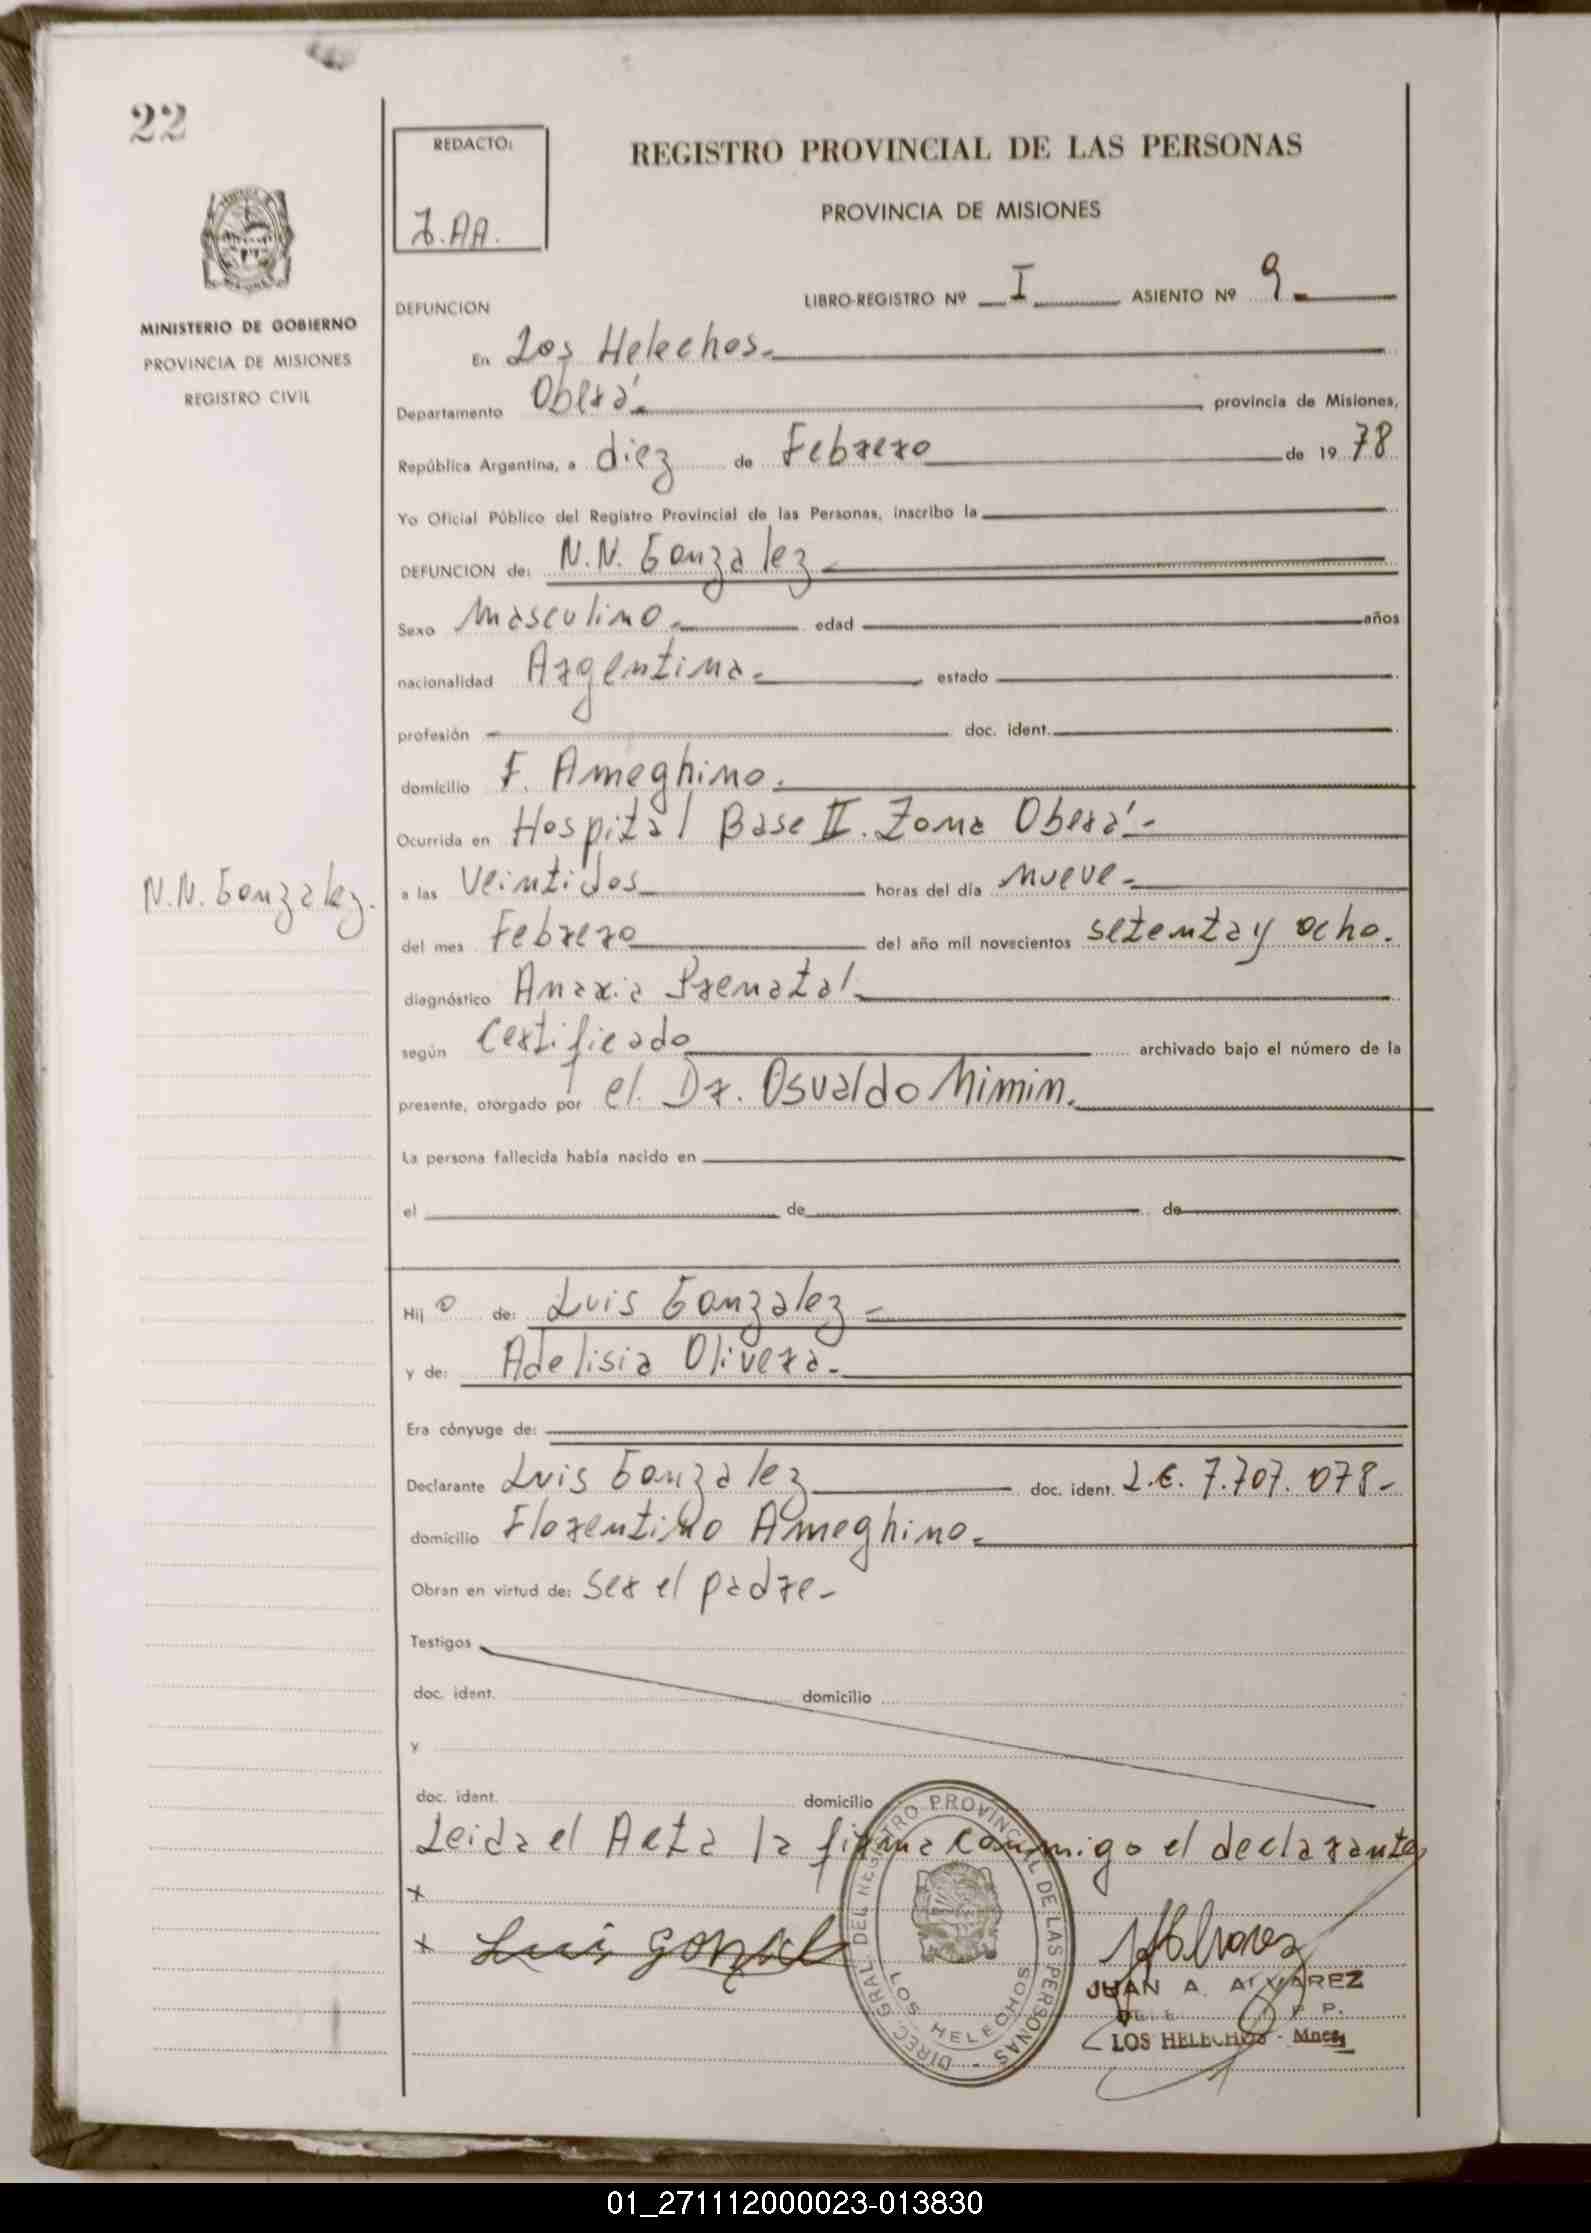 22
REDACTO:
J.AA.
REGISTRO PROVINCIAL DE LAS PERSONAS
PROVINCIA DE MISIONES
MINISTERIO DE GOBIERNO
PROVINCIA DE MISIONES
REGISTRO CIVIL
DEFUNCION LIBRO-REGISTRO Nº I ASIENTO Nº 9
En Los Helechos.
Departamento Oberá provincia de Misiones,
República Argentina, a diez de Febrero de 1978
Yo Oficial Público del Registro Provincial de las Personas, inscribo la
DEFUNCION de: N.N. Gonzalez
Sexo Masculino. edad años
nacionalidad Argentina. estado
profesión doc. ident.
domicilio F. Ameghino.
Ocurrida en Hospital Base II. Zona Oberá.
N.N. Gonzalez.
a las Veintidos horas del día nueve
del mes Febrero del año mil novecientos setenta y ocho.
diagnóstico Anaxia Prenatal
según Certificado archivado bajo el número de la
presente, otorgado por el. Dr. Osvaldo Mimin.
La persona fallecida había nacido en
el de de
Hijo de: Luis Gonzalez
y de: Adelisia Olivera.
Era cónyuge de:
Declarante Luis Gonzalez doc. ident. L.E. 7.707.078-
domicilio Florentino Ameghino.
Obran en virtud de: ser el padre-
Testigos
doc. ident. domicilio
y
doc. ident. domicilio
Leida el Acta la firma conmigo el declarante
x
x Luis Gonzalez
DIREC. GRAL. DEL REGISTRO PROVINCIAL DE LAS PERSONAS
LOS HELECHOS
JAlvarez
JUAN A. ALVAREZ
P. P.
LOS HELECHOS - Mnes.
01_271112000023-013830